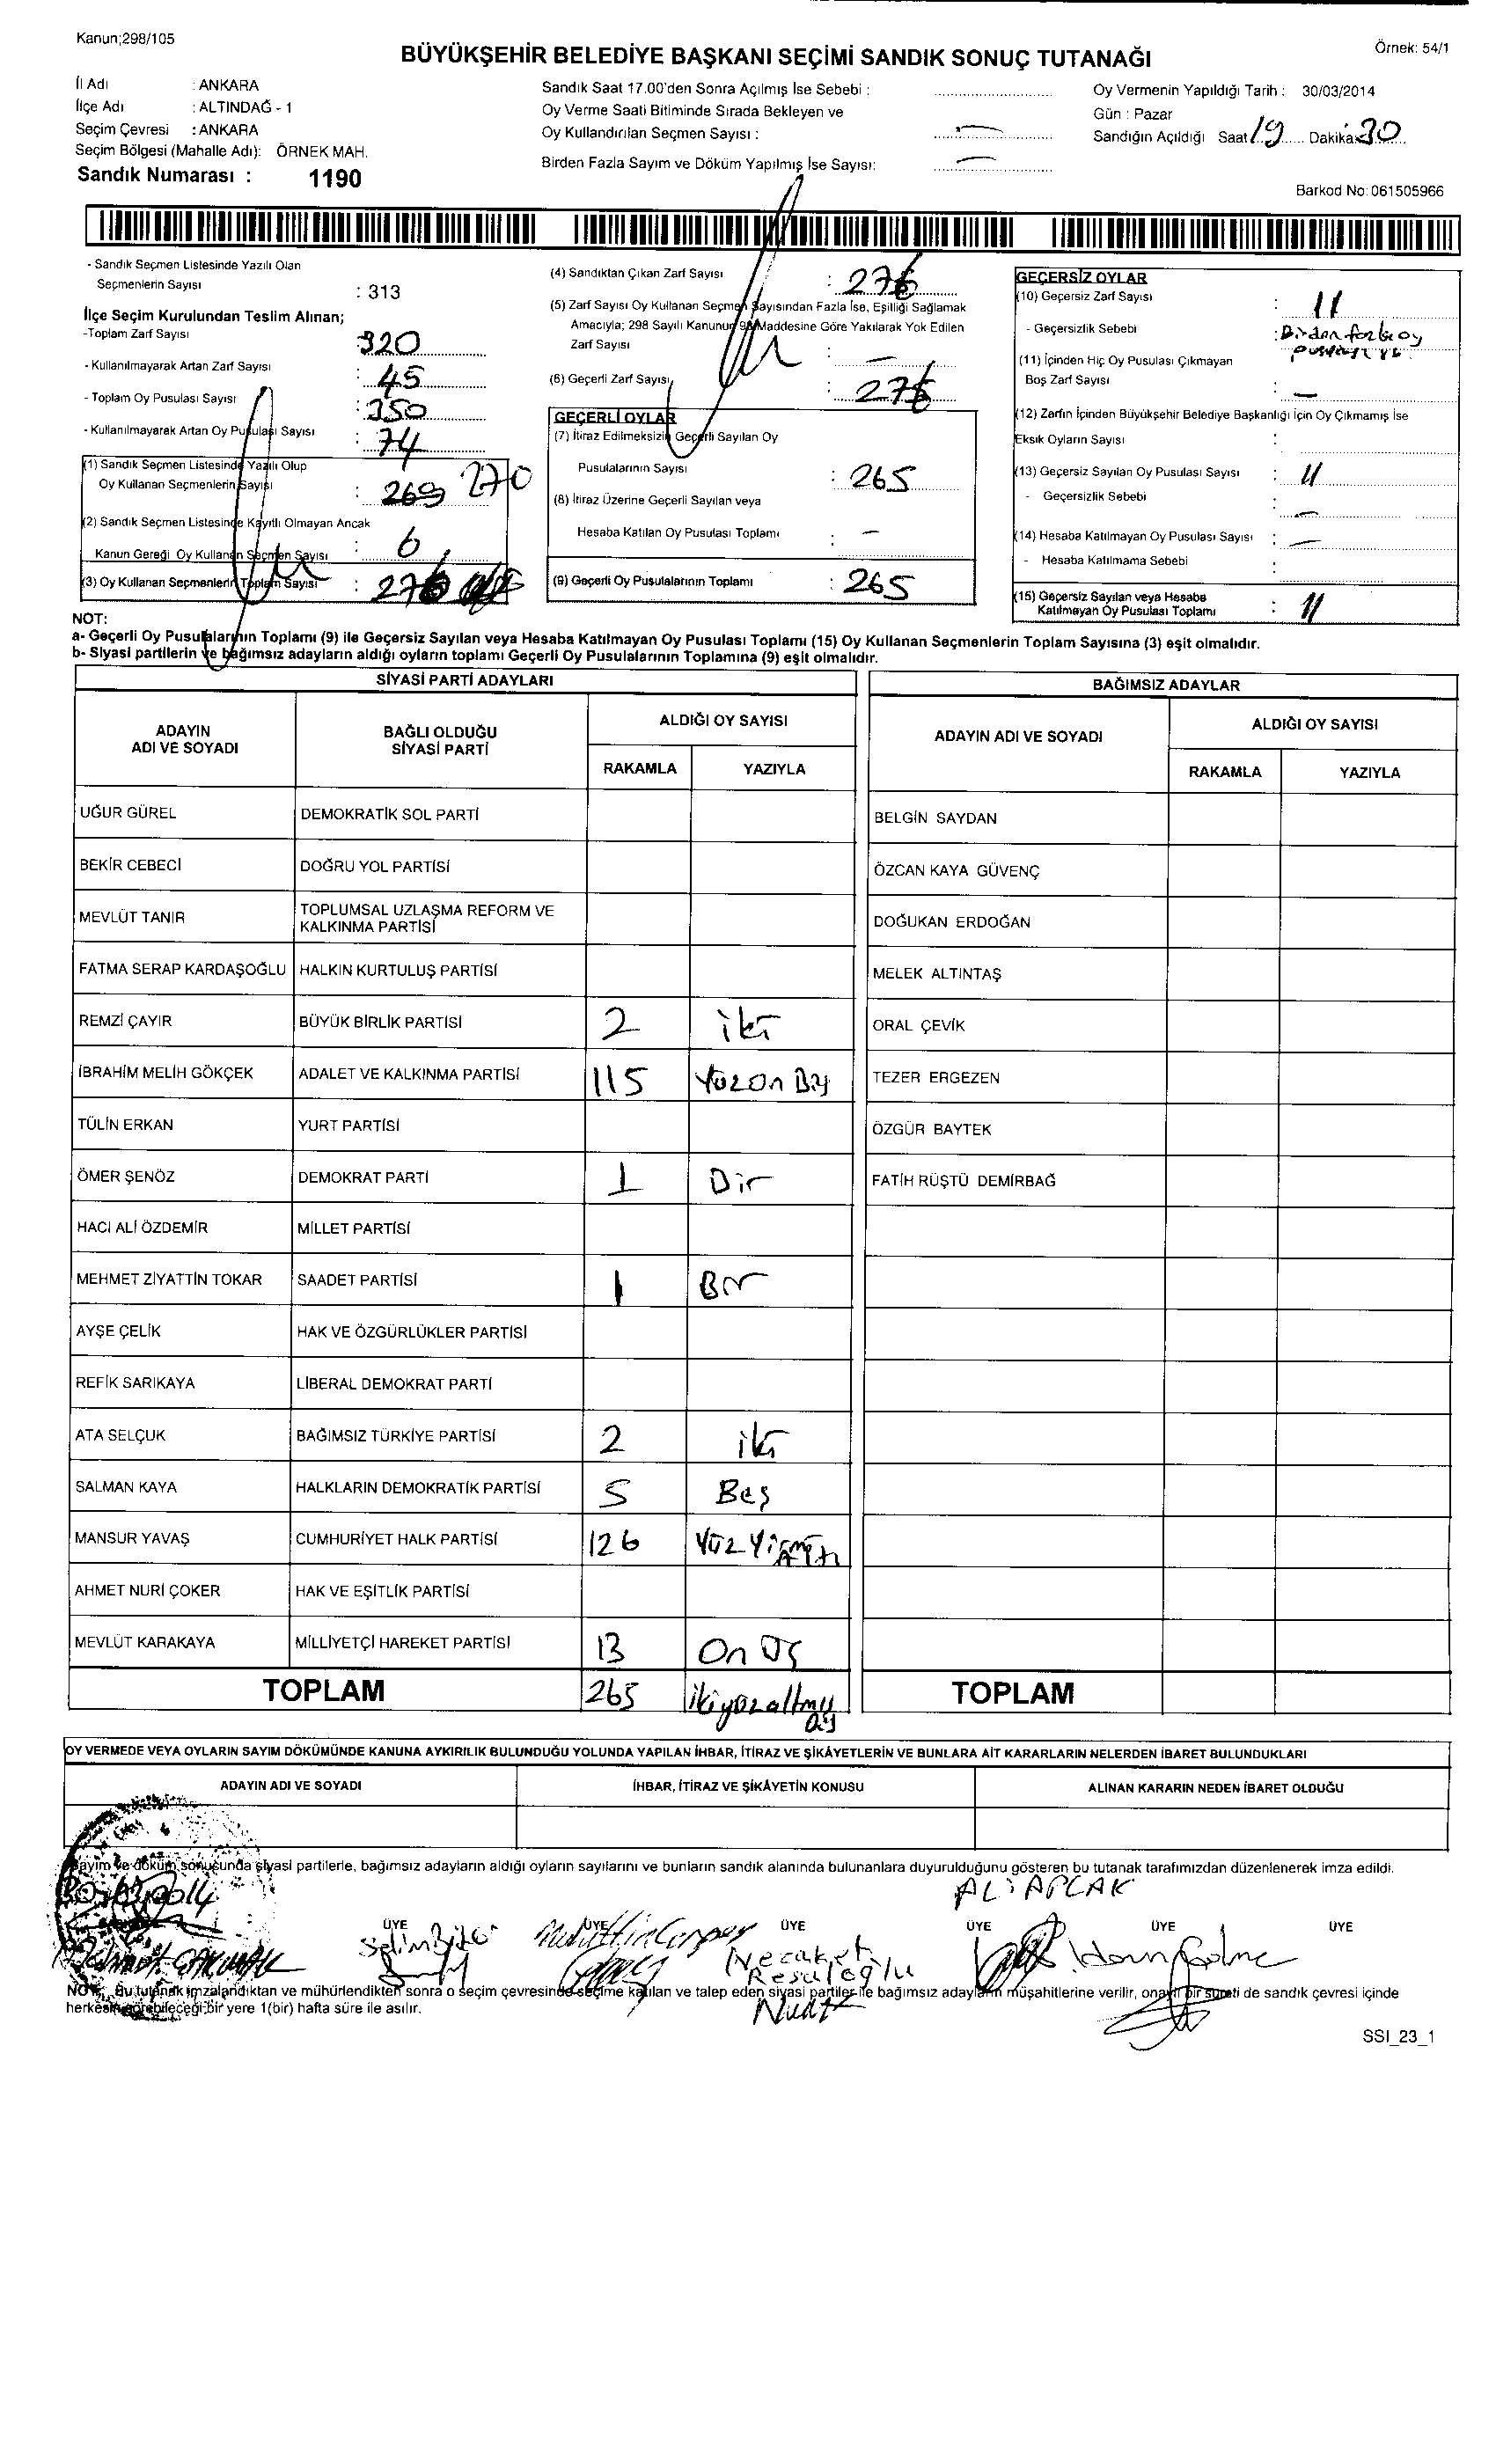 Kanun;298/105
Örnek: 54/1
BÜYÜKŞEHİR BELEDİYE BAŞKANI SEÇİMİ SANDIK SONUÇ TUTANAĞI
İl Adı : ANKARA
İlçe Adı : ALTINDAĞ - 1
Seçim Çevresi : ANKARA
Seçim Bölgesi (Mahalle Adı): ÖRNEK MAH.
Sandık Numarası : 1190
Sandık Saat 17.00'den Sonra Açılmış İse Sebebi :
Oy Verme Saati Bitiminde Sırada Bekleyen ve
Oy Kullandırılan Seçmen Sayısı : —
Birden Fazla Sayım ve Döküm Yapılmış İse Sayısı: —
Oy Vermenin Yapıldığı Tarih : 30/03/2014
Gün : Pazar
Sandığın Açıldığı Saat 19 Dakika 30
Barkod No:061505966
- Sandık Seçmen Listesinde Yazılı Olan
Seçmenlerin Sayısı : 313
İlçe Seçim Kurulundan Teslim Alınan;
-Toplam Zarf Sayısı : 320
- Kullanılmayarak Artan Zarf Sayısı : 45
- Toplam Oy Pusulası Sayısı : 350
- Kullanılmayarak Artan Oy Pusulası Sayısı : 74
(1) Sandık Seçmen Listesinde Yazılı Olup
Oy Kullanan Seçmenlerin Sayısı : 269 270
(2) Sandık Seçmen Listesinde Kayıtlı Olmayan Ancak
Kanun Gereği Oy Kullanan Seçmen Sayısı : 6
(3) Oy Kullanan Seçmenlerin Toplam Sayısı : 276
(4) Sandıktan Çıkan Zarf Sayısı : 276
(5) Zarf Sayısı Oy Kullanan Seçmen Sayısından Fazla İse, Eşitliği Sağlamak
Amacıyla; 298 Sayılı Kanunun 98.Maddesine Göre Yakılarak Yok Edilen
Zarf Sayısı : —
(6) Geçerli Zarf Sayısı : 276
GEÇERLİ OYLAR
(7) İtiraz Edilmeksizin Geçerli Sayılan Oy
Pusulalarının Sayısı : 265
(8) İtiraz Üzerine Geçerli Sayılan veya
Hesaba Katılan Oy Pusulası Toplamı : —
(9) Geçerli Oy Pusulalarının Toplamı : 265
GEÇERSİZ OYLAR
(10) Geçersiz Zarf Sayısı : 11
- Geçersizlik Sebebi : Birden fazla oy
(11) İçinden Hiç Oy Pusulası Çıkmayan
Boş Zarf Sayısı : —
(12) Zarfın İçinden Büyükşehir Belediye Başkanlığı İçin Oy Çıkmamış İse
Eksik Oyların Sayısı :
(13) Geçersiz Sayılan Oy Pusulası Sayısı : 11
- Geçersizlik Sebebi : —
(14) Hesaba Katılmayan Oy Pusulası Sayısı : —
- Hesaba Katılmama Sebebi :
(15) Geçersiz Sayılan veya Hesaba
Katılmayan Oy Pusulası Toplamı : 11
NOT:
a- Geçerli Oy Pusulalarının Toplamı (9) ile Geçersiz Sayılan veya Hesaba Katılmayan Oy Pusulası Toplamı (15) Oy Kullanan Seçmenlerin Toplam Sayısına (3) eşit olmalıdır.
b- Siyasi partilerin ve bağımsız adayların aldığı oyların toplamı Geçerli Oy Pusulalarının Toplamına (9) eşit olmalıdır.
SİYASİ PARTİ ADAYLARI
ADAYIN ADI VE SOYADI
BAĞLI OLDUĞU SİYASİ PARTİ
ALDIĞI OY SAYISI
RAKAMLA YAZIYLA
UĞUR GÜREL DEMOKRATİK SOL PARTİ
BEKİR CEBECİ DOĞRU YOL PARTİSİ
MEVLÜT TANIR TOPLUMSAL UZLAŞMA REFORM VE KALKINMA PARTİSİ
FATMA SERAP KARDAŞOĞLU HALKIN KURTULUŞ PARTİSİ
REMZİ ÇAYIR BÜYÜK BİRLİK PARTİSİ 2 iki
İBRAHİM MELİH GÖKÇEK ADALET VE KALKINMA PARTİSİ 115 Yüzon Beş
TÜLİN ERKAN YURT PARTİSİ
ÖMER ŞENÖZ DEMOKRAT PARTİ 1 Bir
HACI ALİ ÖZDEMİR MİLLET PARTİSİ
MEHMET ZİYATTİN TOKAR SAADET PARTİSİ 1 Bir
AYŞE ÇELİK HAK VE ÖZGÜRLÜKLER PARTİSİ
REFİK SARIKAYA LİBERAL DEMOKRAT PARTİ
ATA SELÇUK BAĞIMSIZ TÜRKİYE PARTİSİ 2 iki
SALMAN KAYA HALKLARIN DEMOKRATİK PARTİSİ 5 Beş
MANSUR YAVAŞ CUMHURİYET HALK PARTİSİ 126 Yüz Yirmi Altı
AHMET NURİ ÇOKER HAK VE EŞİTLİK PARTİSİ
MEVLÜT KARAKAYA MİLLİYETÇİ HAREKET PARTİSİ 13 On Üç
TOPLAM 265 ikiyüzaltmış beş
BAĞIMSIZ ADAYLAR
ADAYIN ADI VE SOYADI
ALDIĞI OY SAYISI
RAKAMLA YAZIYLA
BELGİN SAYDAN
ÖZCAN KAYA GÜVENÇ
DOĞUKAN ERDOĞAN
MELEK ALTINTAŞ
ORAL ÇEVİK
TEZER ERGEZEN
ÖZGÜR BAYTEK
FATİH RÜŞTÜ DEMİRBAĞ
TOPLAM
OY VERMEDE VEYA OYLARIN SAYIM DÖKÜMÜNDE KANUNA AYKIRILIK BULUNDUĞU YOLUNDA YAPILAN İHBAR, İTİRAZ VE ŞİKÂYETLERİN VE BUNLARA AİT KARARLARIN NELERDEN İBARET BULUNDUKLARI
ADAYIN ADI VE SOYADI İHBAR, İTİRAZ VE ŞİKÂYETİN KONUSU ALINAN KARARIN NEDEN İBARET OLDUĞU
Sayım ve döküm sonucunda siyasi partilerle, bağımsız adayların aldığı oyların sayılarını ve bunların sandık alanında bulunanlara duyurulduğunu gösteren bu tutanak tarafımızdan düzenlenerek imza edildi.
ÜYE ÜYE ÜYE ÜYE ÜYE ÜYE
NOT: Bu tutanak imzalandıktan ve mühürlendikten sonra o seçim çevresinde seçime katılan ve talep eden siyasi partiler ile bağımsız adayların müşahitlerine verilir, onaylı bir sureti de sandık çevresi içinde
herkesin görebileceği bir yere 1(bir) hafta süre ile asılır.
SSI_23_1